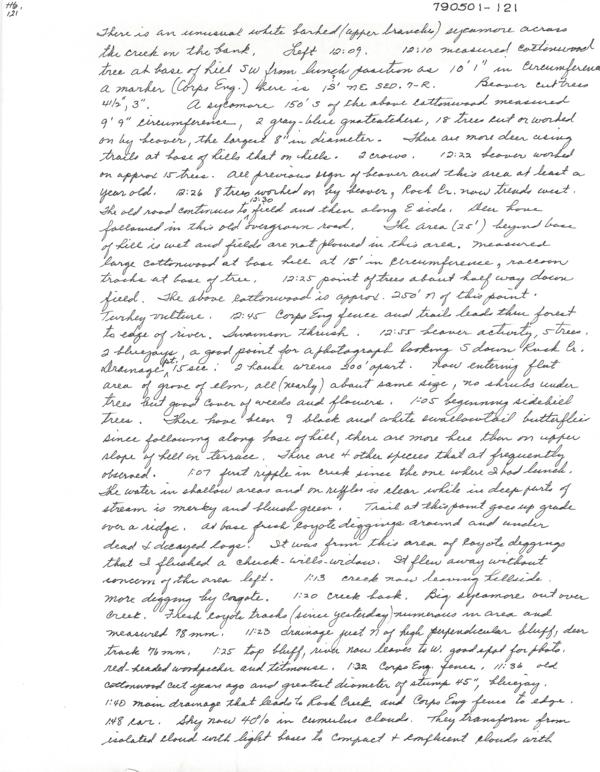 H6.
121
790501-121
There is an unusual white barked (upper branches) sycamore across
the creek on the bank. Left 12:09. 12:10 measured cottonwood
tree at base of hill SW from lunch position as 10' 1" in Circumference
a marker (Corps Eng.) here is 15' NE SED. 7-R. Beaver cut trees
4½", 3". A sycamore 150' S of the above cottonwood measured
9' 9" circumference, 2 gray-blue gnatcatchers, 18 trees cut or worked
on by beaver, the largest 8" in diameter. There are more deer using
trails at base of hills than on hills. 2 crows. 12:22 beaver worked
on approx 15 trees. All previous sign of beaver and this area at least a
year old. 12:26 8 trees worked on by beaver, Rock Cr. now trends west.
12:30
The old road continues to field and then along E side. Deer have
followed in this old overgrown road. The area (25') beyond base
of hill is wet and fields are not plowed in this area. Measured
large cottonwood at base hill at 15' in circumference, raccoon
tracks at base of tree. 12:25 point of trees about half way down
field. The above cottonwood is approx. 250' N of this point.
Turkey vulture. 12:45 Corps Eng fence and trail leads thru forest
to edge of river. Swainson thrush. 12:55 beaver activity, 5 trees.
2 bluejays, a good point for a photograph looking S down Rock Cr.
Drainage pt. 15 sec. 2 house wrens 200' apart. Now entering flat
area of grove of elm, all (nearly) about same size, no shrubs under
trees but good cover of weeds and flowers. 1:05 beginning sidehill
trees. There have been 9 black and white swallowtail butterflies
since following along base of hill, there are more here than on upper
slope of hill on terrace. There are 4 other species that at frequently
observed. 1:07 first ripple in creek since the one where I had lunch.
The water in shallow areas and on riffles is clear while in deep parts of
stream is merky and bluish green. Trail at this point goes up grade
over a ridge. At base fresh coyote diggings around and under
dead & decayed logs. It was from this area of coyote diggings
that I flushed a chuck-wills-widow. It flew away without
concern of the area left. 1:13 creek now leaving hillside.
more digging by coyote. 1:20 creek back. Big sycamore out over
creek. Fresh coyote tracks (since yesterday) numerous in area and
measured 78 mm. 11:23 drainage just N of high perpendicular bluff, deer
track 76 mm. 1:25 top bluff, river now leaves to W. good spot for photo.
red-headed woodpecker and titmouse. 1:32 Corps Eng. fence. 11:36 old
cottonwood cut years ago and greatest diameter of stump 45", bluejay.
1:40 main drainage that leads to Rock Creek and Corps Eng fence to edge.
1:48 car. Sky now 40% in cumulus clouds. They transform from
isolated cloud with light bases to compact & confluent clouds with